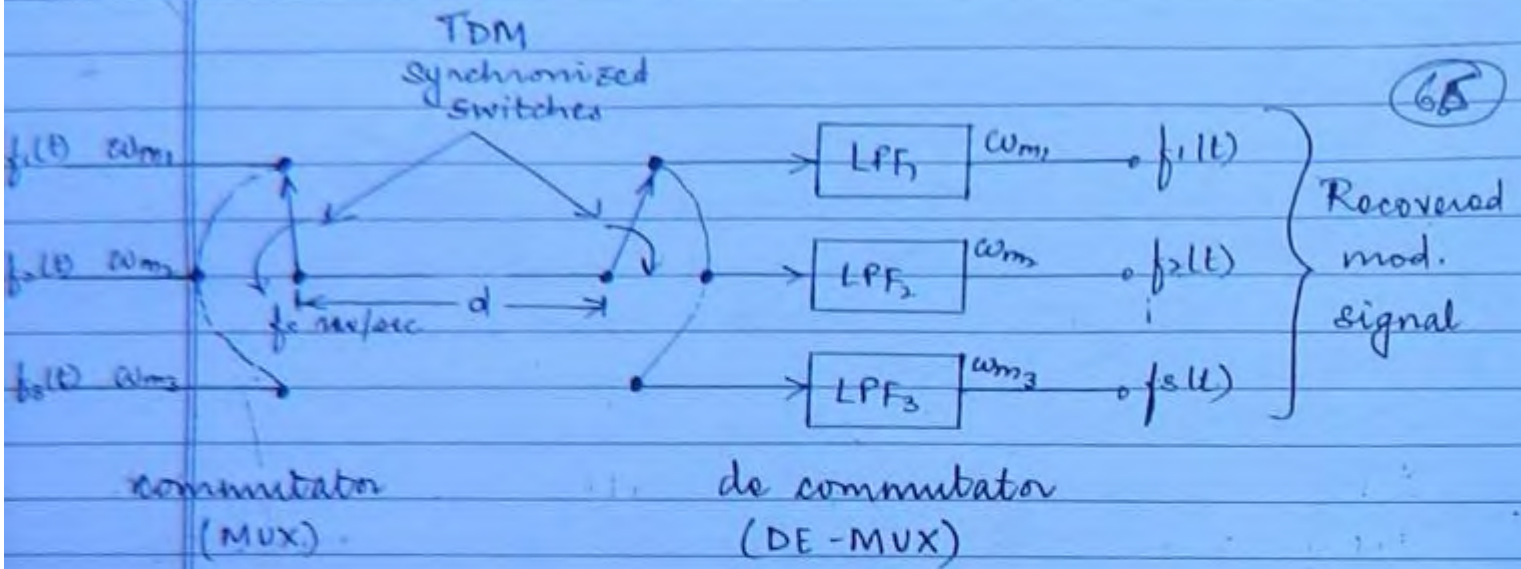 TDM
Synchronized
switches
68
f1(t) ωm1
LPF1
ωm1
f1(t)
f2(t) ωm2
fc rev/sec
d
LPF2
ωm2
f2(t)
f3(t) ωm3
LPF3
ωm3
f3(t)
Recovered
mod.
signal
commutator
(MUX).
de commutator
(DE-MUX)